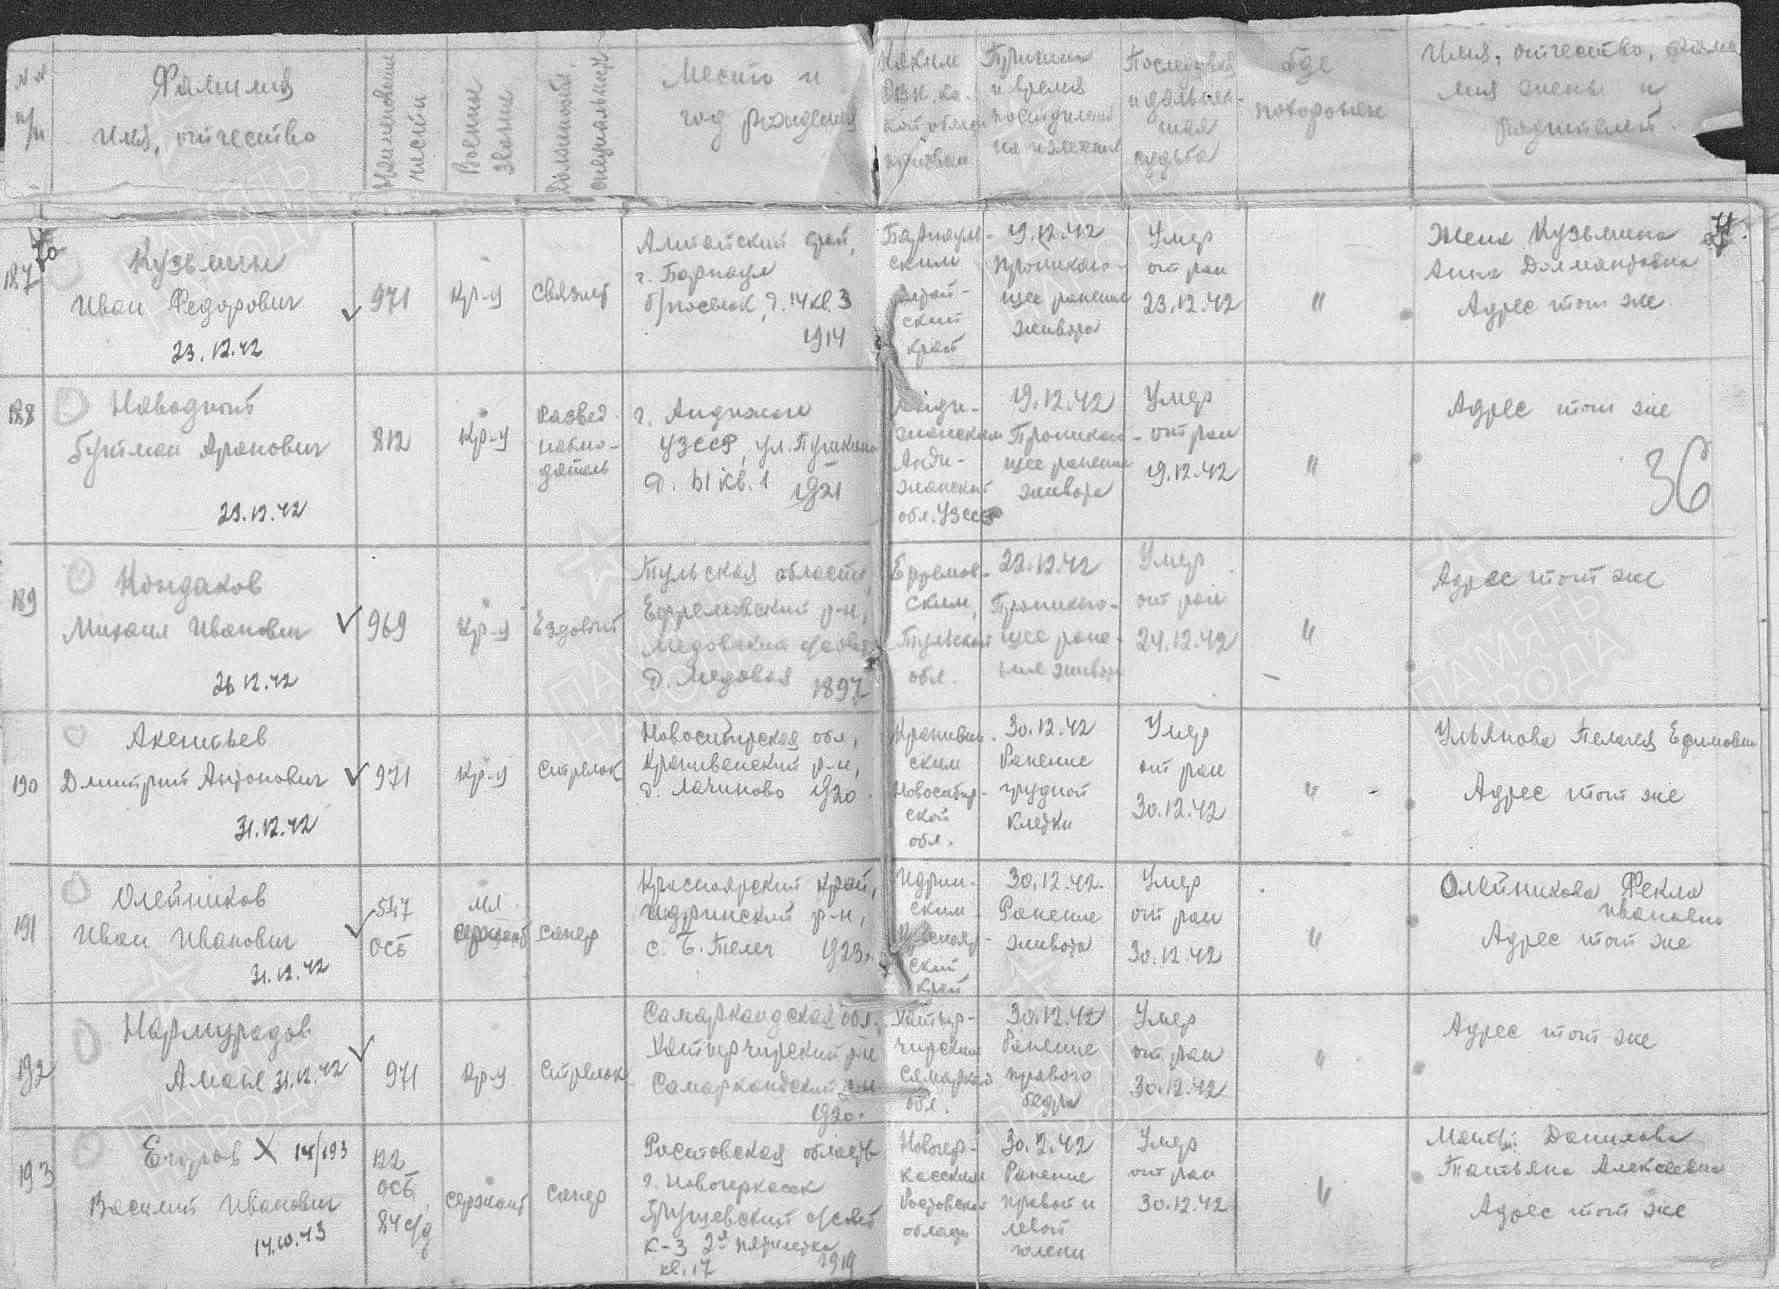 №№ п/п
Фамилия
имя, отчество
Наименование части
Военное звание
Должность, специальность
Место и
год рождения
Каким
РВК, ка-
кой области
призван
Причина
и время
поступления
на излечение
Последующая
и дальней-
шая
судьба
Где
похоронен
Имя, отчество, фами-
лия жены и
родителей
187
Кузьмин
Иван Федорович
23.12.42
971
Кр-ц
Связист
Алтайский край,
г. Барнаул
б/поселок, д. 14 кв. 3
1914
Барнауль-
ским
Алтай-
ский
край
19.12.42
Проникаю-
щее ранение
живота
Умер
от ран
23.12.42
"
Жена Кузьмина
Анна
Адрес тот же
188
Гутман Аронович
812
Кр-ц
Развед.
наблю-
датель
г. Андижан
УзССР, ул. Пушкина
кв. 1 1921
Анди-
жанским
Анди-
жанской
обл. УзССР
19.12.42
Проникаю-
щее ранение
живота
Умер
от ран
19.12.42
"
Адрес тот же
36
189
Кондаков
Михаил Иванович
26.12.42
969
Кр-ц
Ездовой
Тульская область,
Ефремовский р-н,
Медовский с/совет
д. Медовая 1897
Ефремов-
ским,
Тульской
обл.
22.12.42
Проникаю-
щее ране-
ние живота
Умер
от ран
24.12.42
"
Адрес тот же
190
Акентьев
Дмитрий Антонович
31.12.42
971
Кр-ц
Стрелок
Новосибирская обл,
Крапивенский р-н,
д. Лачиново 1920
Крапивин-
ским
Новосибир-
ской
обл.
30.12.42
Ранение
грудной
клетки
Умер
от ран
30.12.42
"
Ульянова Пелагея Ефимовна
Адрес тот же
191
Олейников
Иван Иванович
31.12.42
547
ОСБ
Мл.
сержант
Сапер
Красноярский край,
Идринский р-н,
с. Б. Телек 1923
Идрин-
ским
Краснояр-
ский
край
30.12.42
Ранение
живота
Умер
от ран
30.12.42
"
Олейникова Фекла
Ивановна
Адрес тот же
192
Нармурадов
Аман 31.12.42
971
Кр-ц
Стрелок
Самаркандская обл.,
Хатырчирский р-н
Самаркандский
1920.
Хатыр-
чирский
Самарканд
обл.
30.12.42
Ранение
правого
бедра
Умер
от ран
30.12.42
"
Адрес тот же
193
Егоров X 14/193
Василий Иванович
14.10.43
122
ОСБ,
84 с/д
Сержант
Сапер
Ростовская область
г. Новочеркасск
Грушевский с/совет
К-3 2я пятилетка
кв. 17 1919
Новочер-
касским
Ростовской
области
30.12.42
Ранение
правой и
левой
голени
Умер
от ран
30.12.42
"
Мать: Данилова
Татьяна Алексеевна
Адрес тот же
ПАМЯТЬ
НАРОДА